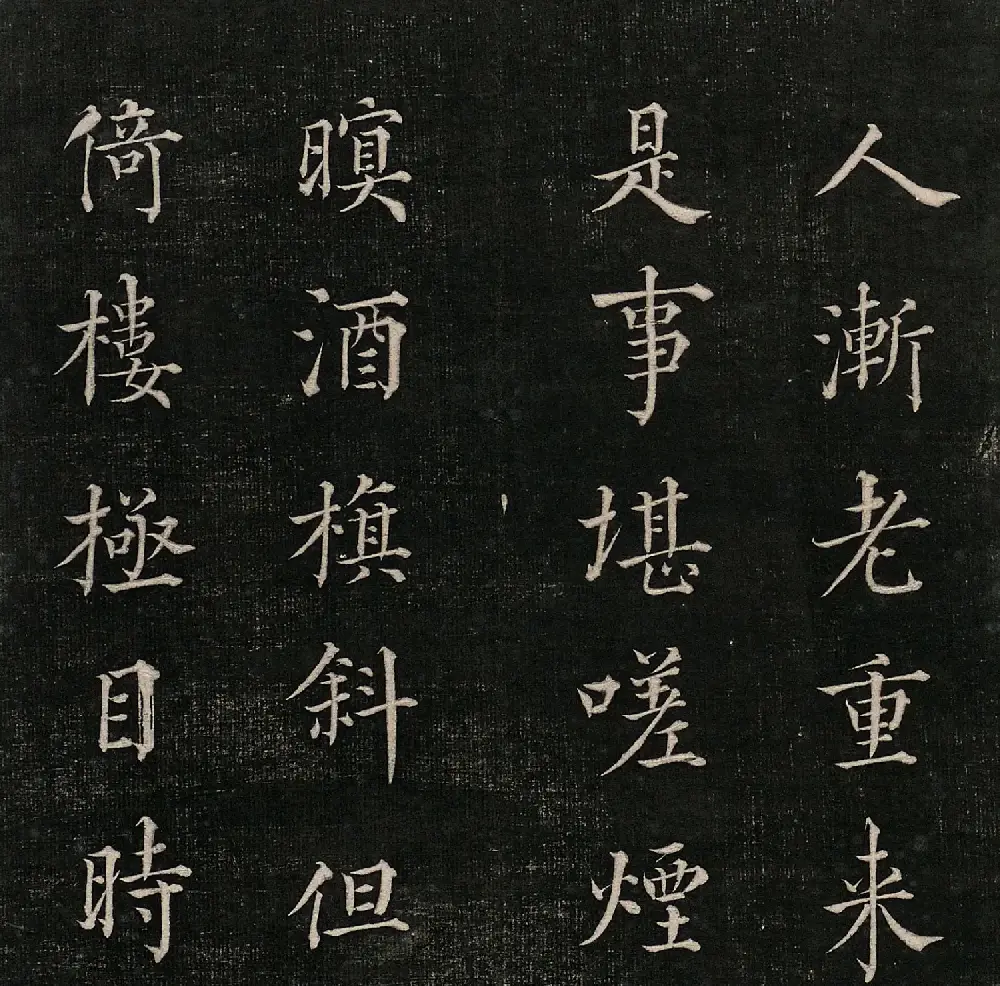 人漸老重来
是事堪嗟煙
暝酒旗斜但
倚樓極目時